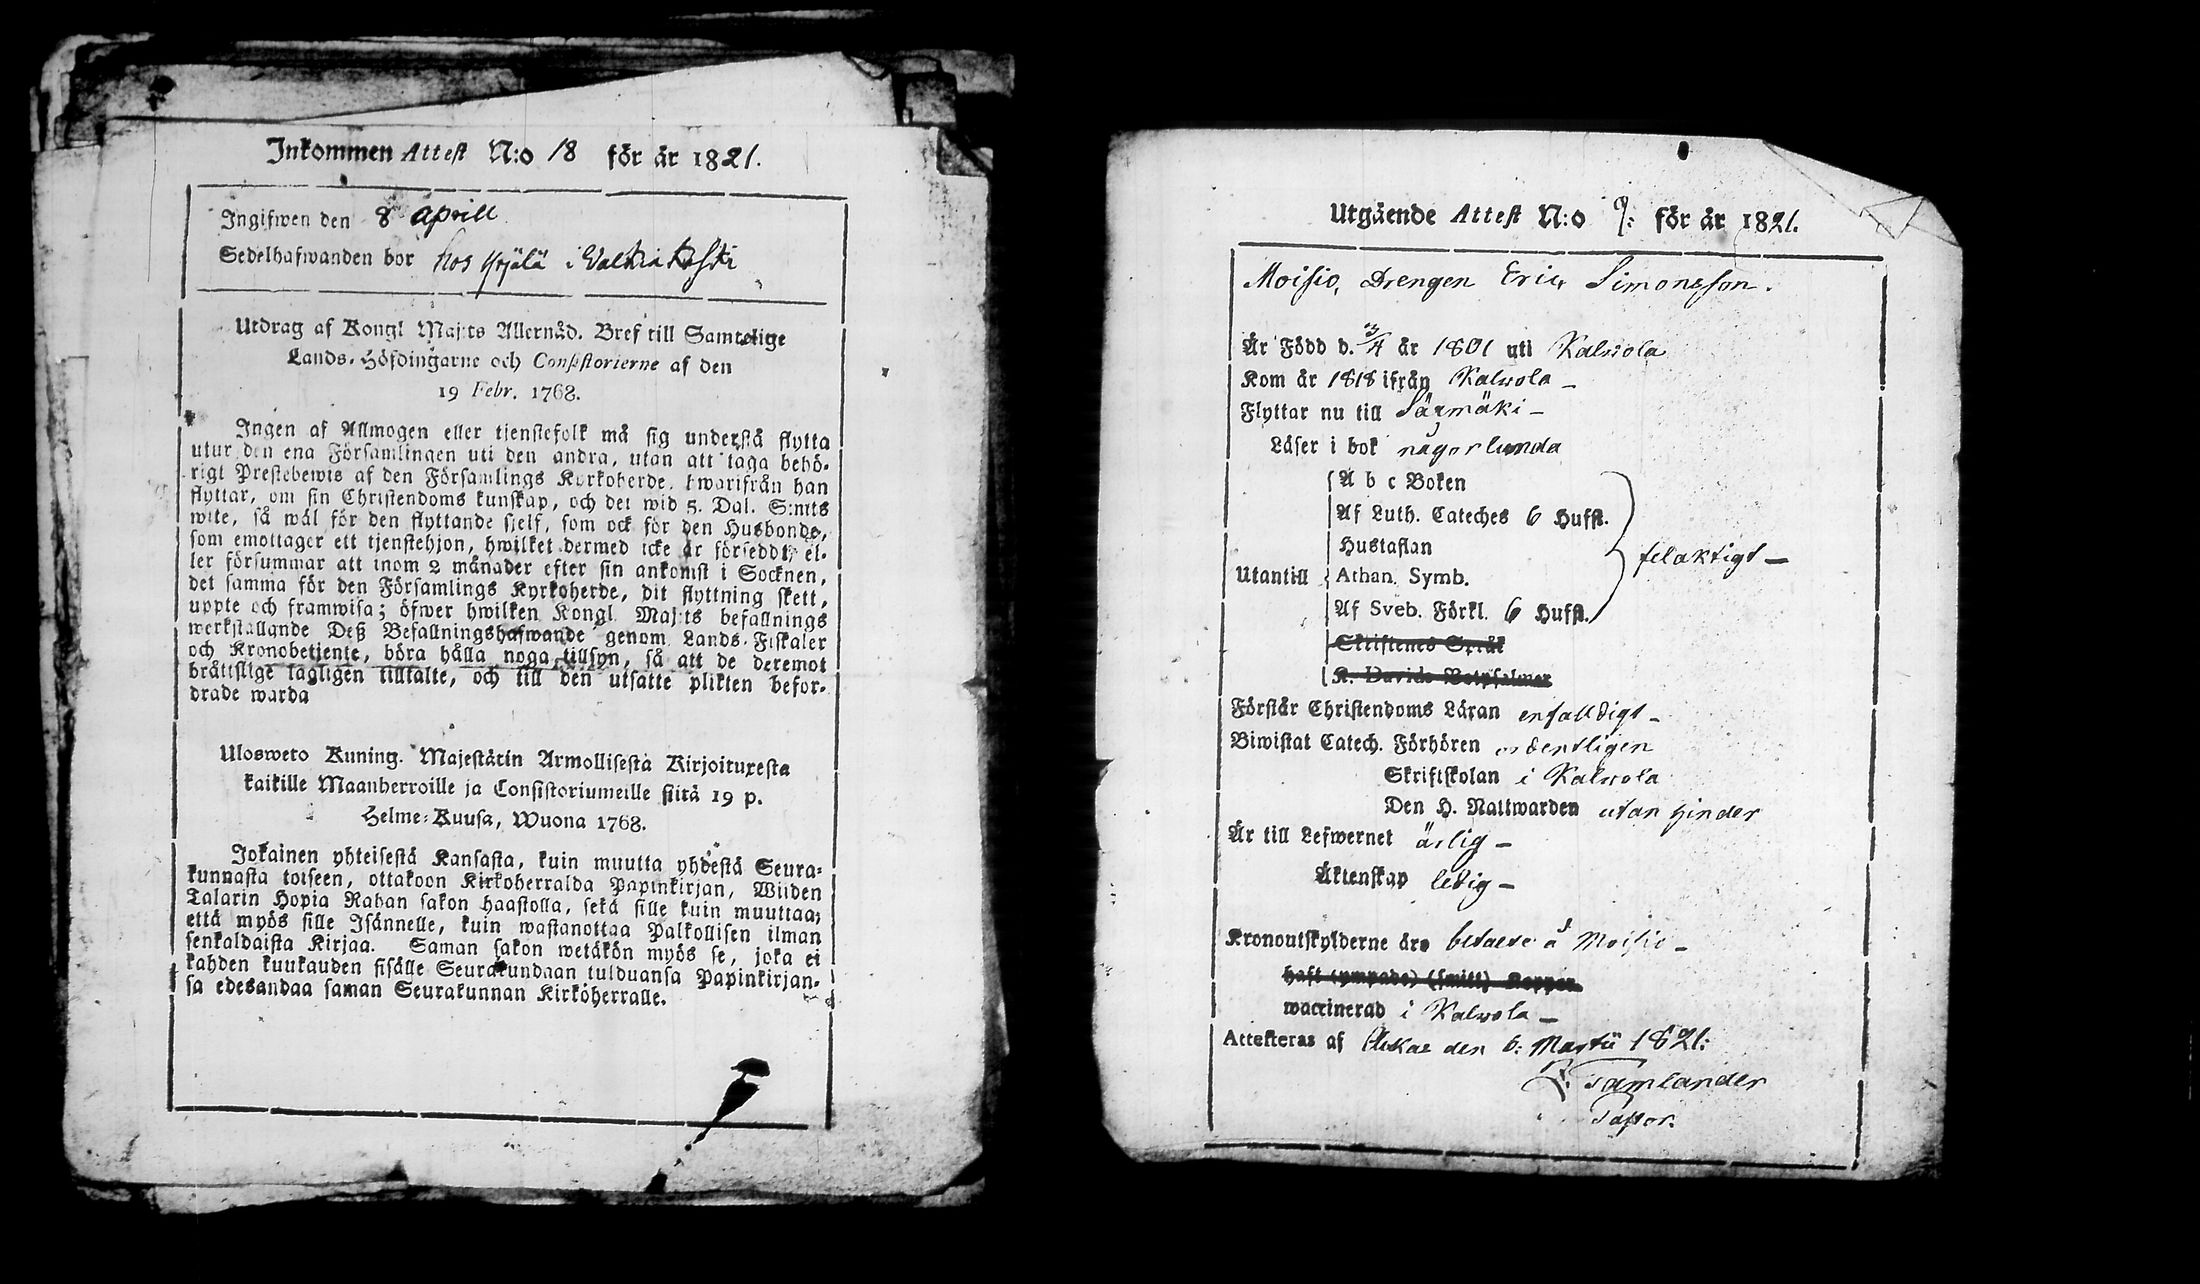 Inkommen Attest N:o 18 för år 1821.
Ingifwen den 8 Aprill
Sedelhafwanden bor hos Yrjälä i Valkiakoski
Utdrag af Kongl Maj:ts Allernåd. Bref till Samtelige
Lands-Höfdingarne och Consistorierne af den
19 Febr. 1768.
Ingen af Allmogen eller tjenstefolk må sig understå flytta
utur den ena Församlingen uti den andra, utan att taga behö-
rigt Prestebewis af den Församlings Kyrkoherde, hwarifrån han
flyttar, om sin Christendoms kunskap, och det wid 5. Dal. S:mts
wite, så wäl för den flyttande sjelf, som ock för den Husbonde,
som emottager ett tjenstehjon, hwilket dermed icke är försedt, el-
ler försummar att inom 2 månader efter sin ankomst i Socknen,
det samma för den Församlings Kyrkoherde, dit flyttning skett,
uppte och framwisa; öfwer hwilken Kongl Maj:ts befallnings
werkställande Deß Befallningshafwande genom Lands-Fiskaler
och Kronobetjente, böra hålla noga tillsyn, så att de deremot
bråttslige lagligen tilltalte, och till den utsatte plikten befor-
drade warda
Ulosweto Kuning. Majestätin Armollisesta Kirjoituxesta
kaikille Maanherroille ja Consistoriumeille siitä 19 p.
Helme-Kuusa, Wuona 1768.
Jokainen yhteisestä Kansasta, kuin muutta yhdestä Seura-
kunnasta toiseen, ottakoon Kirkoherralda Papinkirjan, Wiiden
Talarin Hopia Rahan sakon haastolla, sekä sille kuin muuttaa;
että myös sille Isännelle, kuin wastanottaa Palkollisen ilman
senkaldaista Kirjaa. Saman sakon wetäkön myös se, joka ei
kahden kuukauden sisälle Seurakundaan tulduansa Papinkirjan-
sa edesandaa saman Seurakunnan Kirköherralle.
Utgående Attest N:o 9: för år 1821.
Moisio, Drengen Eric Simonsson.
Är Född d. 3/4 år 1801 uti Kalvola
Kom år 1818 ifrån Kalvola –
Flyttar nu till Särmäki –
Läser i bok någorlunda
A b c Boken
Af Luth. Cateches 6 Hufst.
Hustaflan
felaktigt –
Utantill Athan. Symb.
Af Sveb. Förkl. 6 Hufst.
Skriftenes Språk
K. Davids Botpsalmer
Förstår Christendoms Läran enfaldigt –
Biwistat Catech. Förhören ordentligen
Skriftskolan i Kalvola
Den H. Nattwarden utan hinder
Är till Lefwernet ärlig –
Äktenskap ledig –
Kronoutskylderne äro betalte å Moisio –
haft (ympade) (smitt) Koppor
waccinerad i Kalvola –
Attesteras af Akkas den 6: Martii 1821:
Tamlander
Pastor.